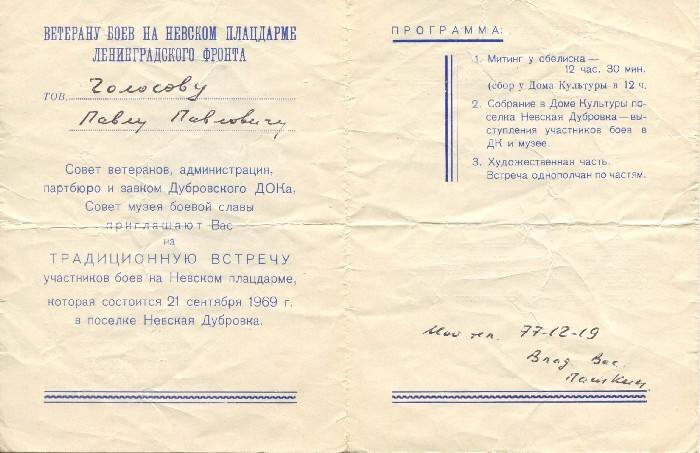 ВЕТЕРАНУ БОЕВ НА НЕВСКОМ ПЛАЦДАРМЕ
ЛЕНИНГРАДСКОГО ФРОНТА
тов. Голосову
Павлу Павловичу
Совет ветеранов, администрация,
партбюро и завком Дубровского ДОКа,
Совет музея боевой славы
приглашают Вас
на
ТРАДИЦИОННУЮ ВСТРЕЧУ
участников боев на Невском плацдарме,
которая состоится 21 сентября 1969 г.
в поселке Невская Дубровка.
ПРОГРАММА:
1. Митинг у обелиска—
12 час. 30 мин.
(сбор у Дома Культуры в 12 ч.
2. Собрание в Доме Культуры по-
селка Невская Дубровка—вы-
ступления участников боев в
ДК и музее.
3. Художественная часть.
Встреча однополчан по частям.
Мой тел. 77-12-19
Влад. Вас.
Пашкин